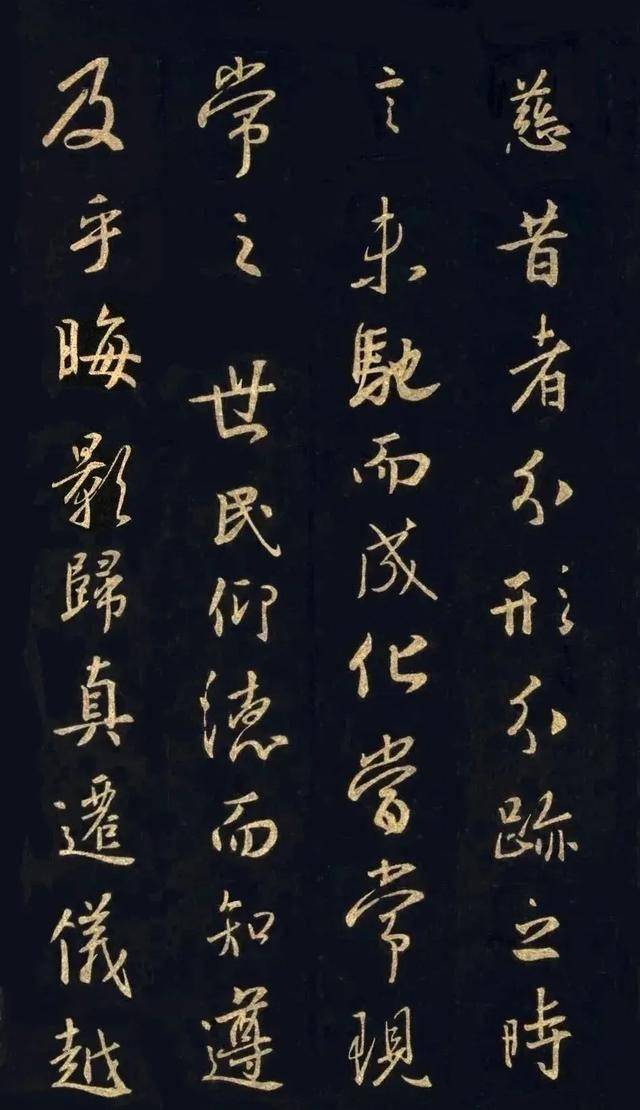 慈昔者分形分跡之時
言未馳而成化當常現
常之世民仰德而知遵
及乎晦影歸真遷儀越